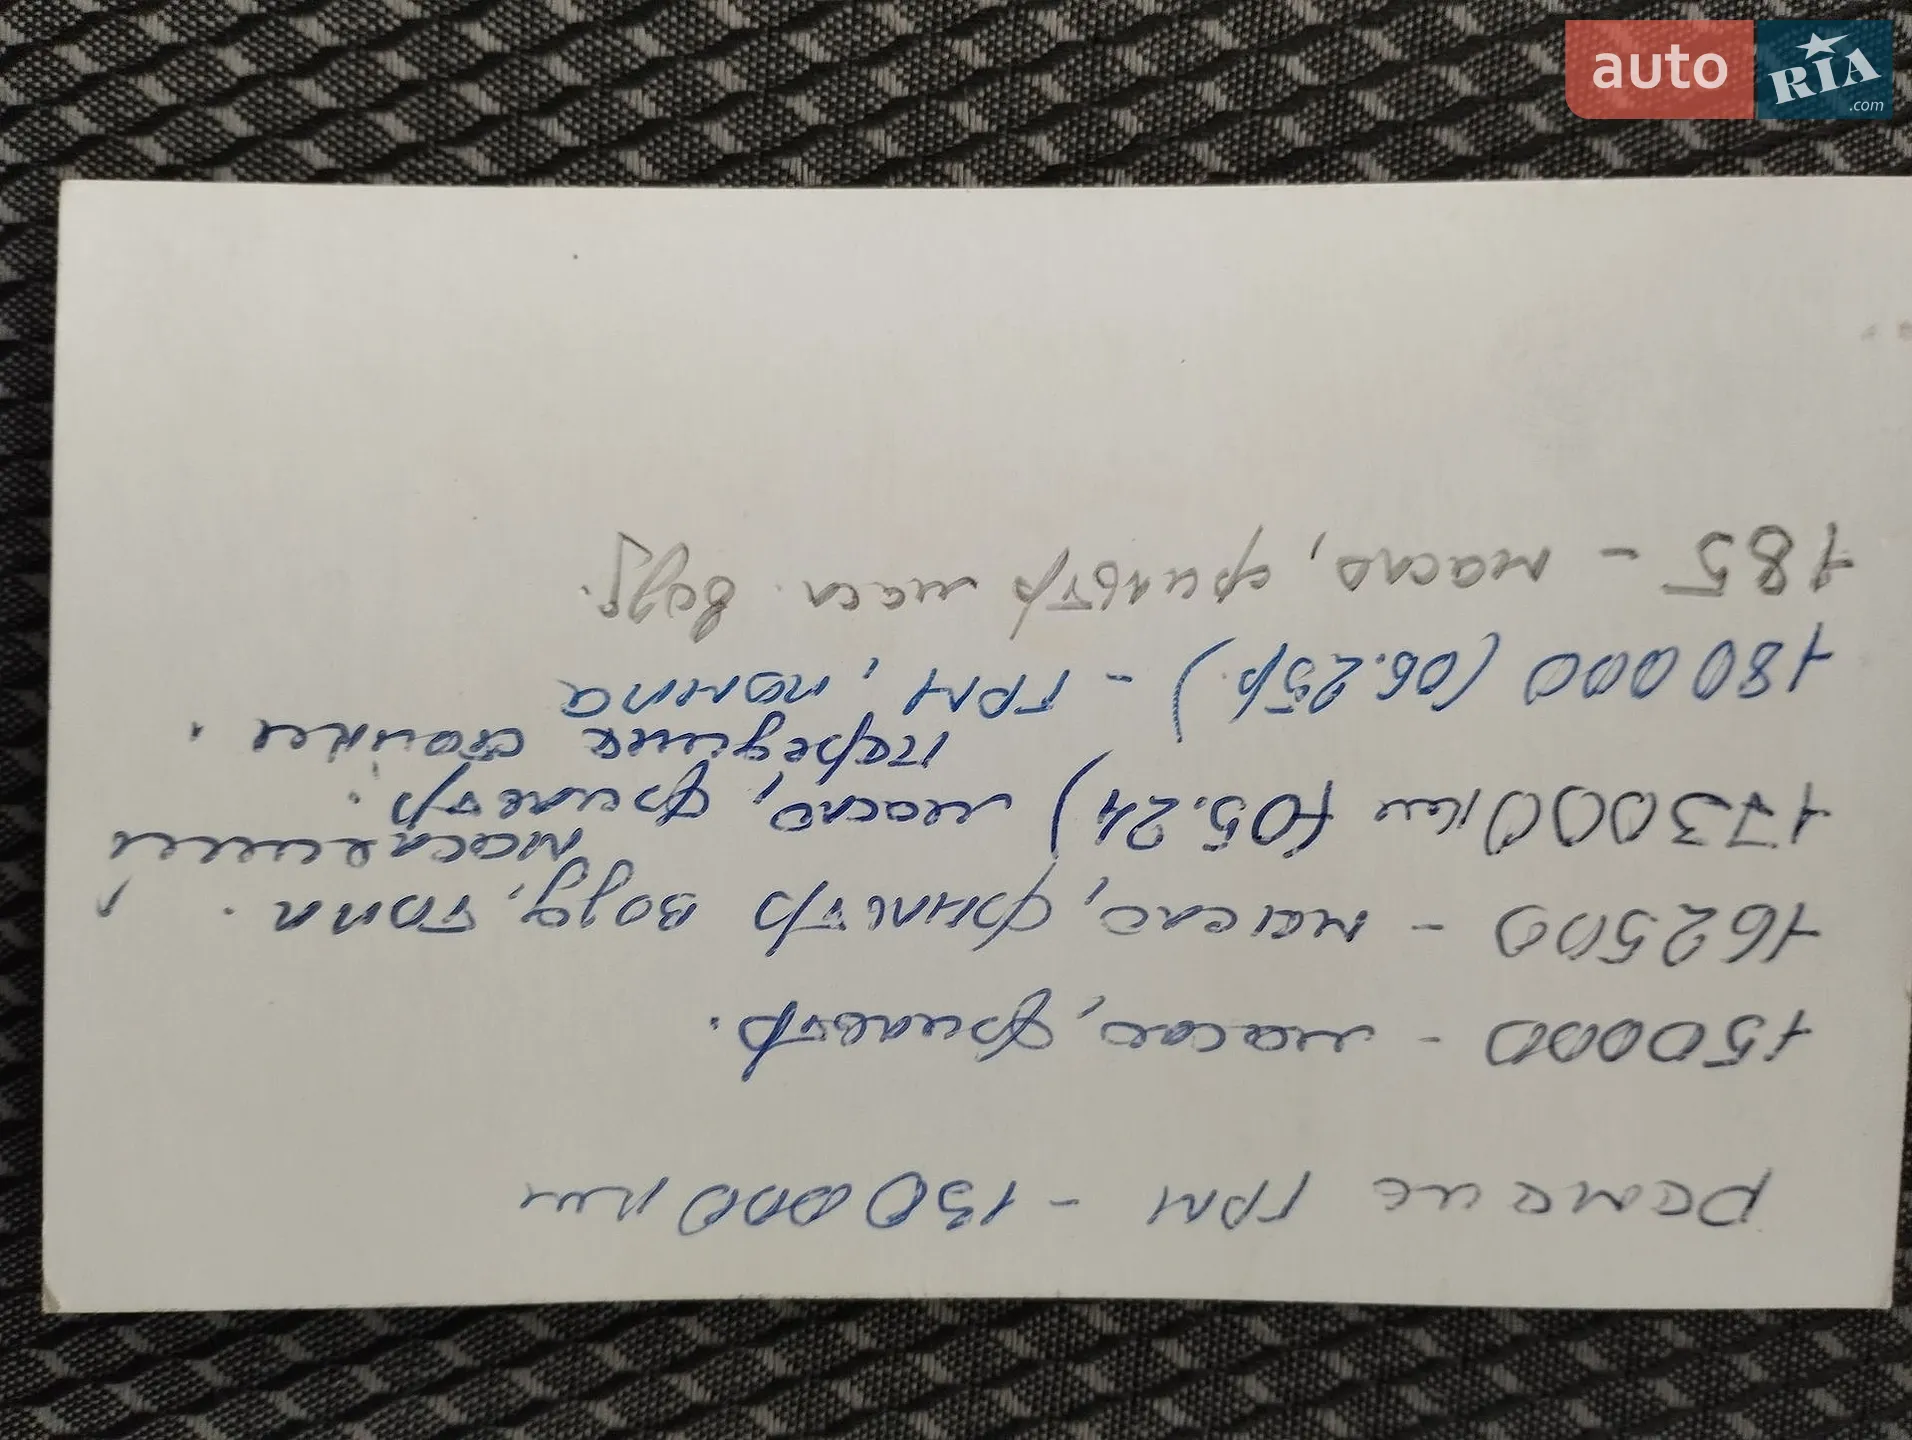 auto RIA .com
ремень ГРМ - 130000 км
150000 - масло, фильтр.
162500 - масло, фильтр возд, топл.
масляный
173000 км (05.24) масло, фильтр.
передние стойки.
180000 (06.25р.) - ГРМ, помпа
185 - масло, фильтр масл. возд.